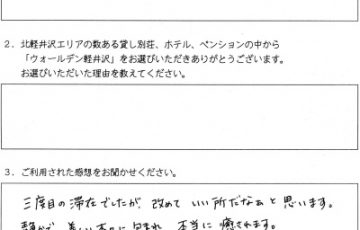 2．北軽井沢エリアの数ある貸し別荘、ホテル、ペンションの中から
「ウォールデン軽井沢」をお選びいただきありがとうございます。
お選びいただいた理由を教えてください。
3．ご利用された感想をお聞かせください。
三度目の滞在でしたが 改めて いい所だなぁと思います。
静かで 美しい木々に包まれ 本当に 癒されます。